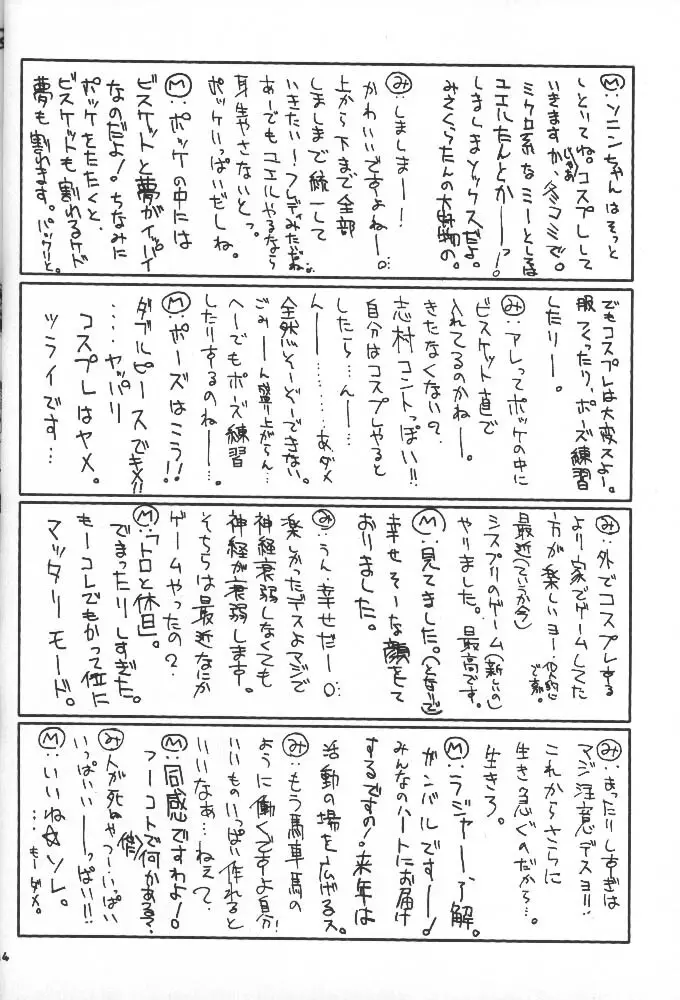 Ⓜ:ソニンちゃんはそっと
しといてね。コスプレして
じゃあ
いきますか、冬コミで。
ミクロ系なミーとしては
ユエルたんとかーっ!
しましまソックスだよ。
みさくらたんの大好物の。
み:しましまー!
かわいいですよねー。
上から下まで全部
しましまで統一して
いきたいー!フレディみたいだね。
あーでもユエルやるなら
身生やさないとっ。
ポッケいっぱいだしね。
Ⓜ:ポッケの中には
ビスケットと夢がイッパイ
なのだよ!ちなみに
ポッケをたたくと、
ビスケットも割れるケド
夢も割れます。パックリと。
でもコスプレは大変スよー。
服つくったり、ポーズ練習
したりー。
み:アレってポッケの中に
ビスケット直で
入れてるのかねー。
きたなくないの?
志村コントっぽい!!
自分はコスプレやると
したら…んー…
んー………あ、ダメ
全然そーぞーできない。
ごみーん盛り上がらん…
へーでもポーズ練習
したりするのねー…。
Ⓜ:ポーズはこう!!
ダブルピースでキメ!!
……ヤッパリ
コスプレはヤメ。
ツライです…
み:外でコスプレする
より家でゲームしてた
方が楽しいヨー…個人的に
です。
最近(ていうか今)
シスプリのゲーム(新しいの)
やりました。最高です。
Ⓜ:見てました。(となりで)
幸せそーな顔をして
おりました。
み:うん…幸せだー。
楽しかったデスよマジで
神経衰弱しなくても
神経が衰弱します。
そちらは最近なにか
ゲームやったの?
Ⓜ:「トロと休日」。
でまったりしすぎた。
もーコレでもかって位に
マッタリモード。
み:まったりしすぎは
マジ注意デスヨ!!
これからさらに
生き急ぐのだから…。
生きろ。
Ⓜ:ラジャー、了解。
ガンバルですー!
みんなのハートにお届け
するですの!来年は
活動の場を広げるス。
み:もう馬車馬の
ように働くですよ自分!
いいものいっぱい作れると
いいなあ…ねえ?
Ⓜ:同感ですわよ!
つーコトで何かある?
み:人が死ぬやつーいっぱい
(他)
いっぱいいーっぱい!!
Ⓜ:いいね☆ソレ。
…もーダメ。
4